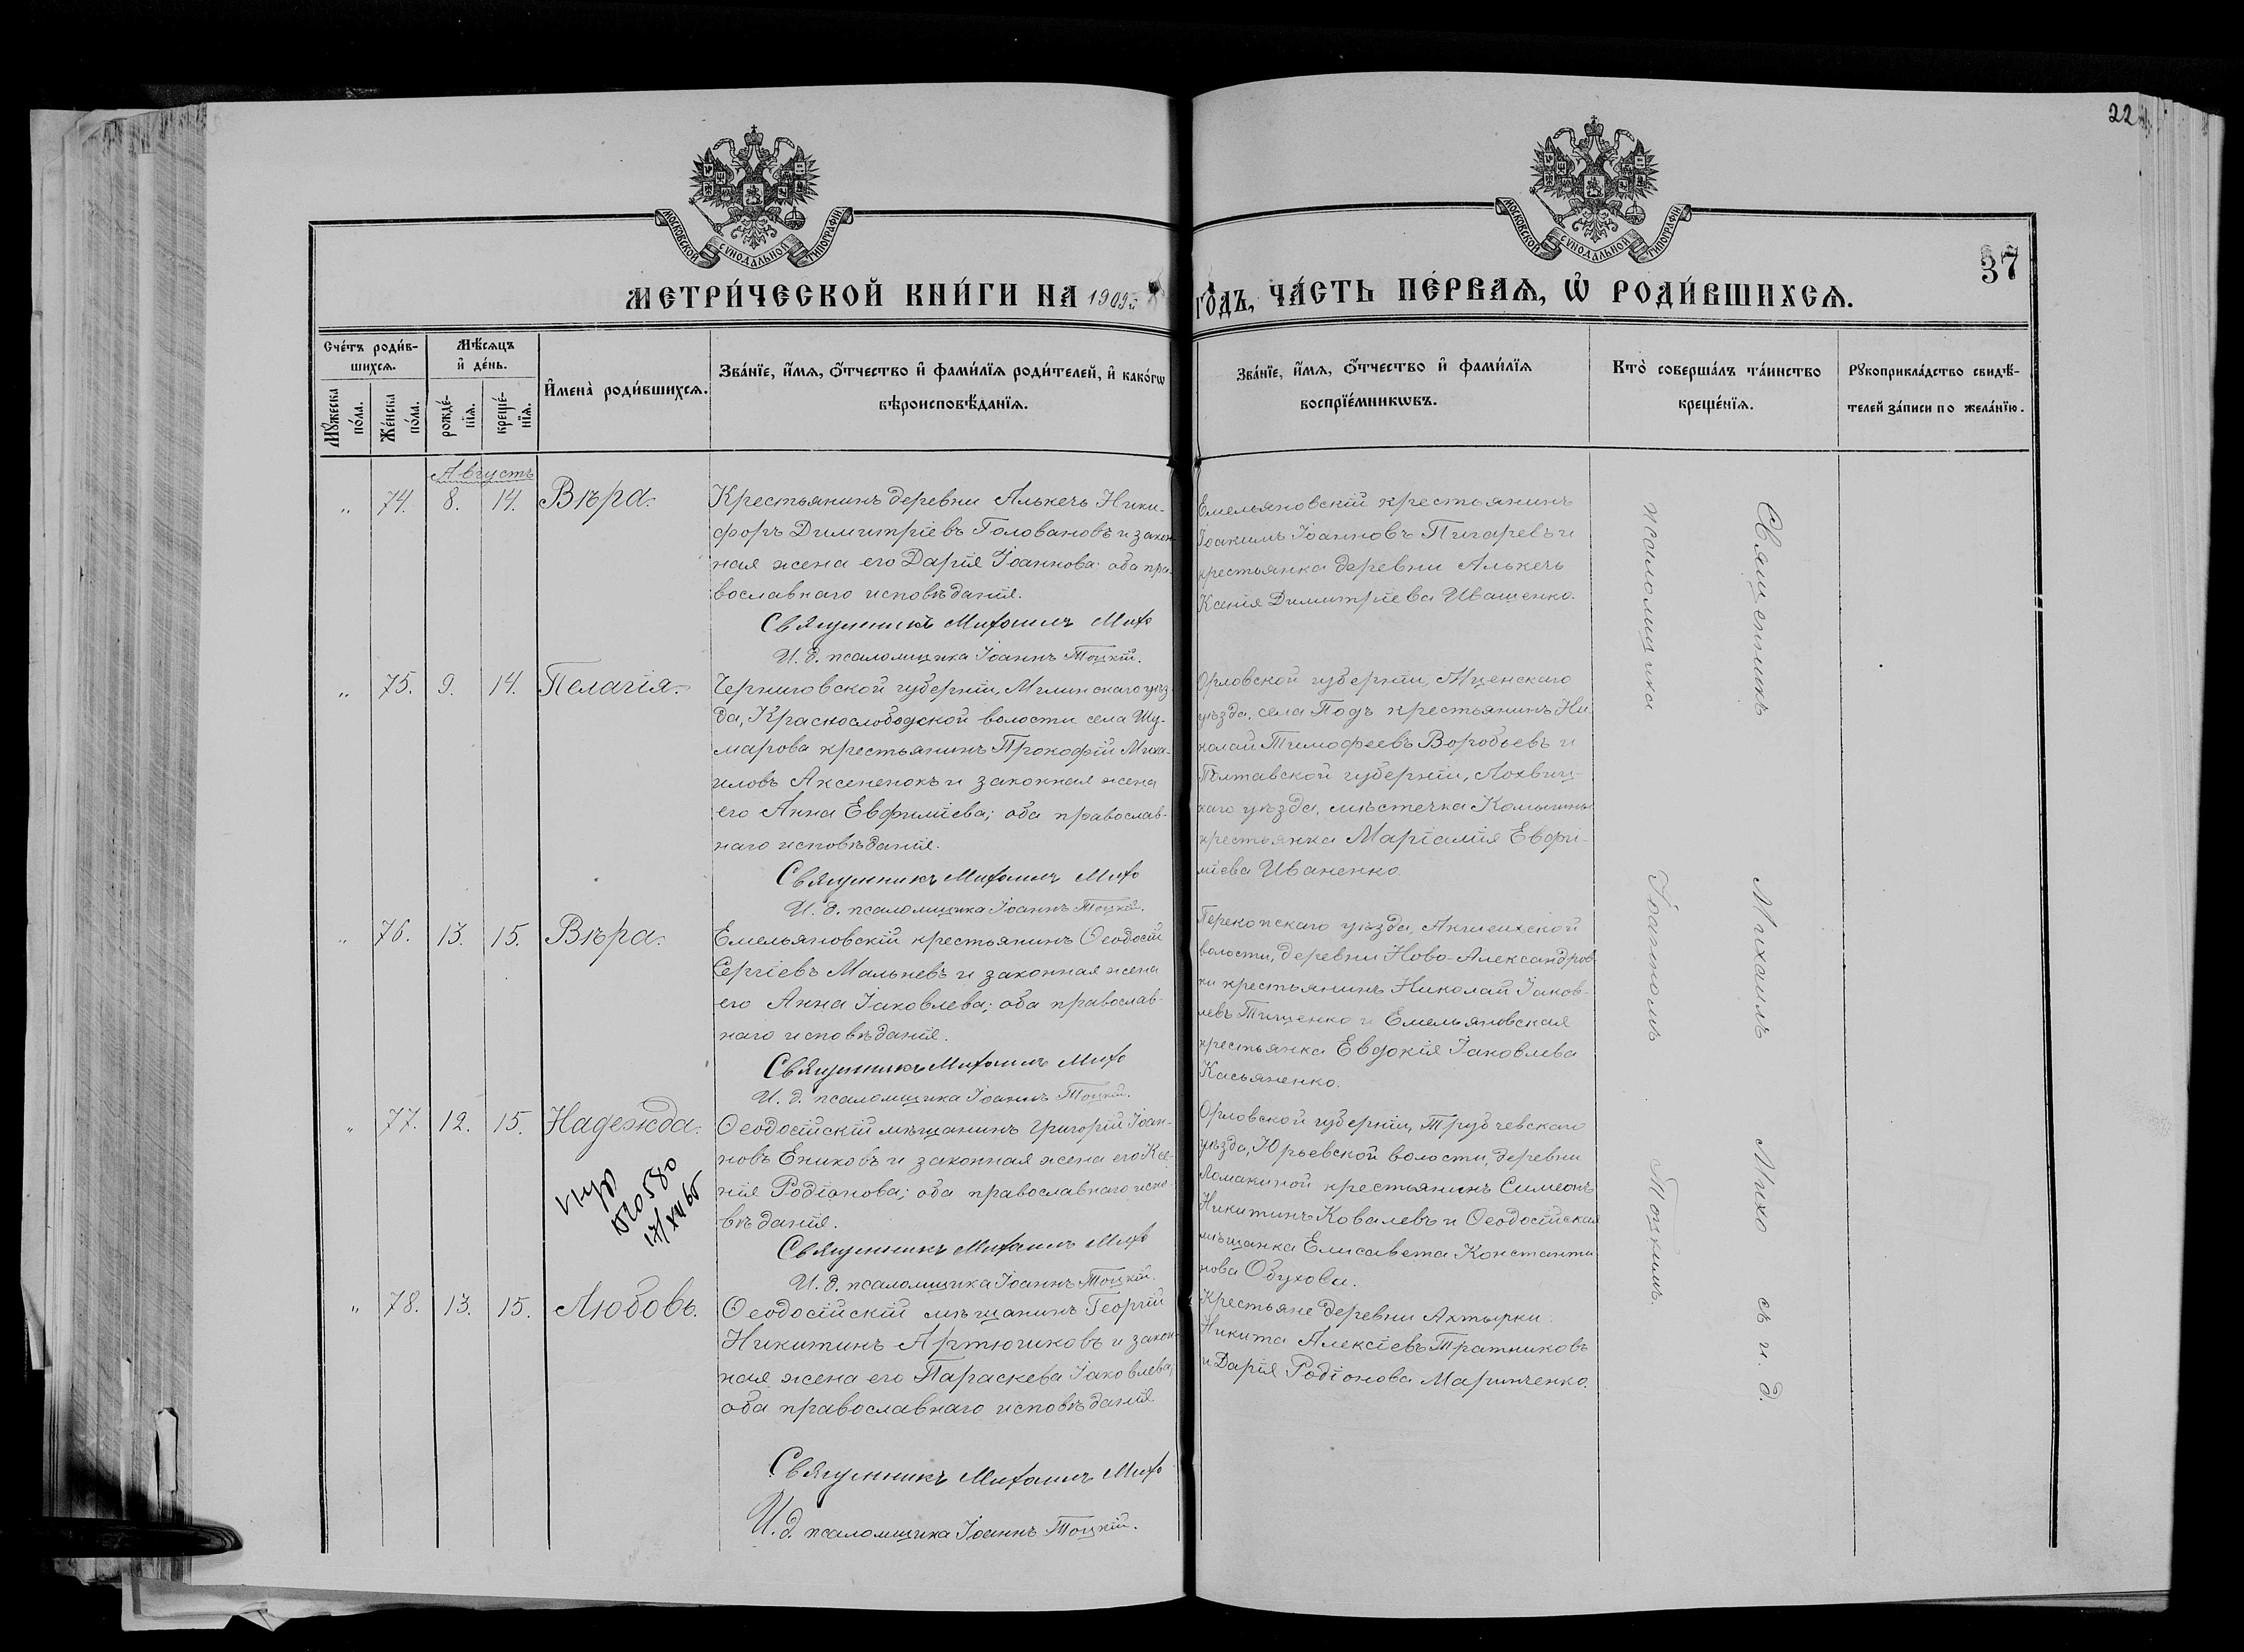 22
МОСКОВСКОЙ СѴНОДАЛЬНОЙ ТИПОГРАФІИ
МОСКОВСКОЙ СѴНОДАЛЬНОЙ ТИПОГРАФІИ
37
МЕТРИ́ЧЕСКОЙ КНИ́ГИ НА 1909 го́дъ, ЧА́СТЬ ПЕ́РВАѦ, Ѡ҆ РОДИ́ВШИХСѦ.
Сче́тъ роди́в-
шихсѧ.
Мѣ́сѧцъ
и҆ де́нь.
Мꙋ́жеска
по́ла.
Же́нска
по́ла.
рожде́-
нїѧ.
креще́-
нїѧ.
И҆мена̀ роди́вшихсѧ.
Зва́нїе, и҆́мѧ, ѻ҆́тчество и҆ фами́лїѧ роди́телей, и҆ како́гѡ
вѣроисповѣ́данїѧ.
Зва́нїе, и҆́мѧ, ѻ҆́тчество и҆ фами́лїѧ
воспрїе́мникѡвъ.
Кто̀ соверша́лъ та́инство
креще́нїѧ.
Рꙋкоприкла́дство свидѣ́-
телей за́писи по жела́нїю.
Августъ
„ 74. 8. 14. Вѣра.
Крестьянинъ деревни Алькечь Ники-
форъ Димитріевъ Головановъ и закон-
ная жена его Дарія Іоаннова; оба пра-
вославнаго исповѣданія.
Священникъ Михаилъ Михо
И. д. псаломщика Іоаннъ Тоцкій.
Емельяновскій крестьянинъ
Іоакимъ Іоанновъ Пигаревъ и
крестьянка деревни Алькечь
Ксенія Димитріева Иващенко.
„ 75. 9. 14. Пелагія.
Черниговской губерніи, Мглинскаго уѣз-
да, Краснослободской волости села Шу-
марова крестьянинъ Прокофій Миха-
иловъ Аксененокъ и законная жена
его Анна Евфиміева; оба православ-
наго исповѣданія.
Священникъ Михаилъ Михо
И. д. псаломщика Іоаннъ Тоцкій.
Орловской губерніи, Мценскаго
уѣзда, села Подъ крестьянинъ Ни-
колай Тимофеевъ Воробьевъ и
Полтавской губерніи, Лохвиц-
каго уѣзда, мѣстечка Комышны
крестьянка Маріамія Евфи-
міева Иваненко.
„ 76. 13. 15. Вѣра.
Емельяновскій крестьянинъ Ѳеодосій
Сергіевъ Мальневъ и законная жена
его Анна Іаковлева; оба православ-
наго исповѣданія.
Священникъ Михаилъ Михо
И. д. псаломщика Іоаннъ Тоцкій.
Перекопскаго уѣзда,
волости, деревни Ново-Александров-
ки крестьянинъ Николай Іаков-
левъ Тищенко и Емельяновская
крестьянка Евдокія Іаковлева
Касьяненко.
„ 77. 12. 15. Надежда.
520580
17/XII 65
Ѳеодосійскій мѣщанинъ Григорій Іоан-
новъ Ениковъ и законная жена его Ксе-
нія Родіонова; оба православнаго испо-
вѣданія.
Священникъ Михаилъ Михо
И. д. псаломщика Іоаннъ Тоцкій.
Орловской губерніи, Трубчевскаго
уѣзда, Юрьевской волости, деревни
Ломакиной крестьянинъ Симеонъ
Никитинъ Ковалевъ и Ѳеодосійская
мѣщанка Елисавета Константи-
нова Обухова.
„ 78. 13. 15. Любовь.
Ѳеодосійскій мѣщанинъ Георгій
Никитинъ Артюшковъ и закон-
ная жена его Параскева Іаковлева;
оба православнаго исповѣданія
Священникъ Михаилъ Михо
И. д. псаломщика Іоаннъ Тоцкій.
Крестьяне деревни Ахтырки:
Никита Алексіевъ Тратниковъ
и Дарія Родіонова Маринченко.
Священникъ Михаилъ Михо съ и. д.
псаломщика Іоанномъ Тоцкимъ.